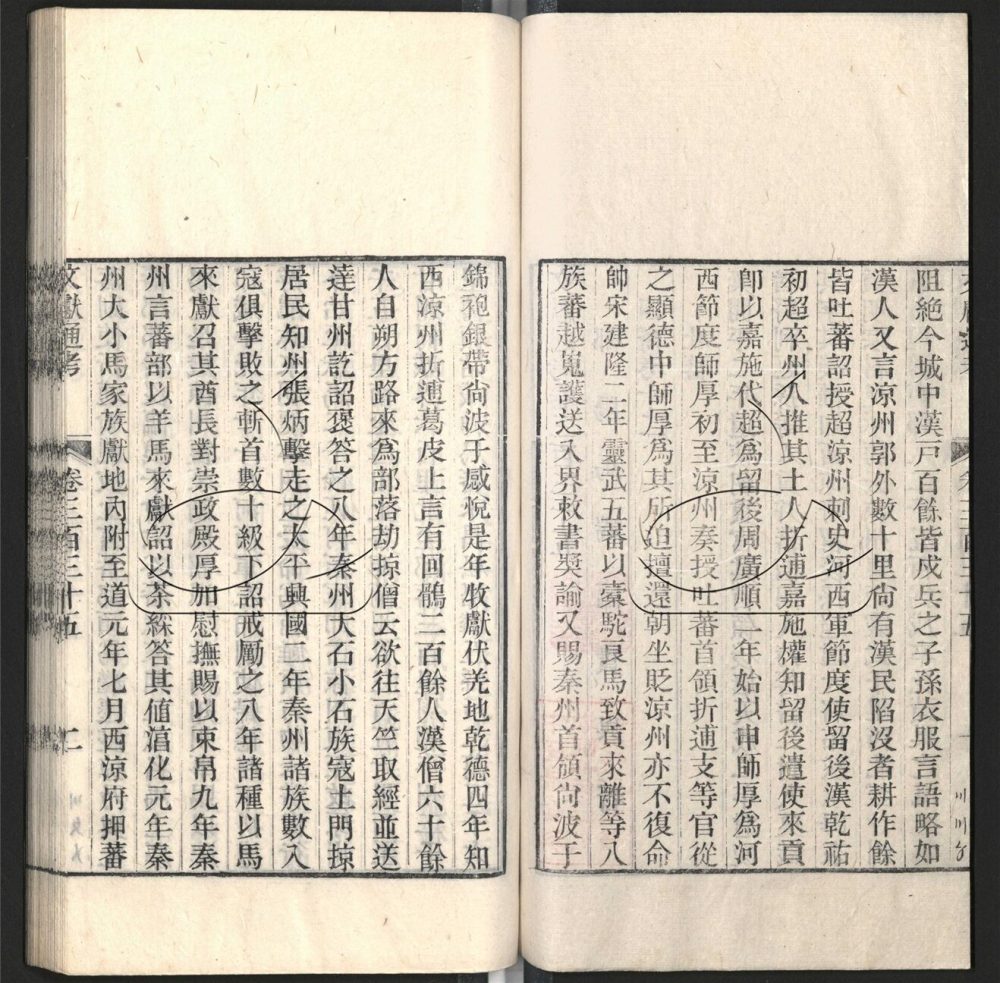 阻絕今城中漢戸百餘皆戍兵之子孫衣服言語略如
漢人又言涼州郭外數十里尙有漢民陷沒者耕作餘
皆吐蕃詔授超涼州刺史河西軍節度使留後漢乾祐
初超卒州人推其土人折逋嘉施權知留後遣使來貢
卽以嘉施代超爲留後周廣順二年始以申師厚爲河
西節度師厚初至涼州奏授吐蕃首領折逋支等官從
之顯德中師厚爲其所迫擅還朝坐貶涼州亦不復命
帥宋建隆二年靈武五蕃以橐駝良馬致貢來離等八
族蕃越嵬護送入界敕書奬諭又賜秦州首領尙波于
錦袍銀帶尙波于感悅是年收獻伏羌地乾德四年知
西涼州折逋葛皮上言有回鶻二百餘人漢僧六十餘
人自朔方路來爲部落劫掠僧云欲往天竺取經並送
達甘州訖詔褒答之八年秦州大石小石族寇土門掠
居民知州張炳擊走之太平興國二年秦州諸族數入
寇俱擊敗之斬首數十級下詔戒勵之八年諸種以馬
來獻召其酋長對崇政殿厚加慰撫賜以束帛九年秦
州言蕃部以羊馬來獻詔以茶綵答其値淯化元年秦
州大小馬家族獻地內附至道元年七月西涼府押蕃
文獻通考 卷三百三十五 二